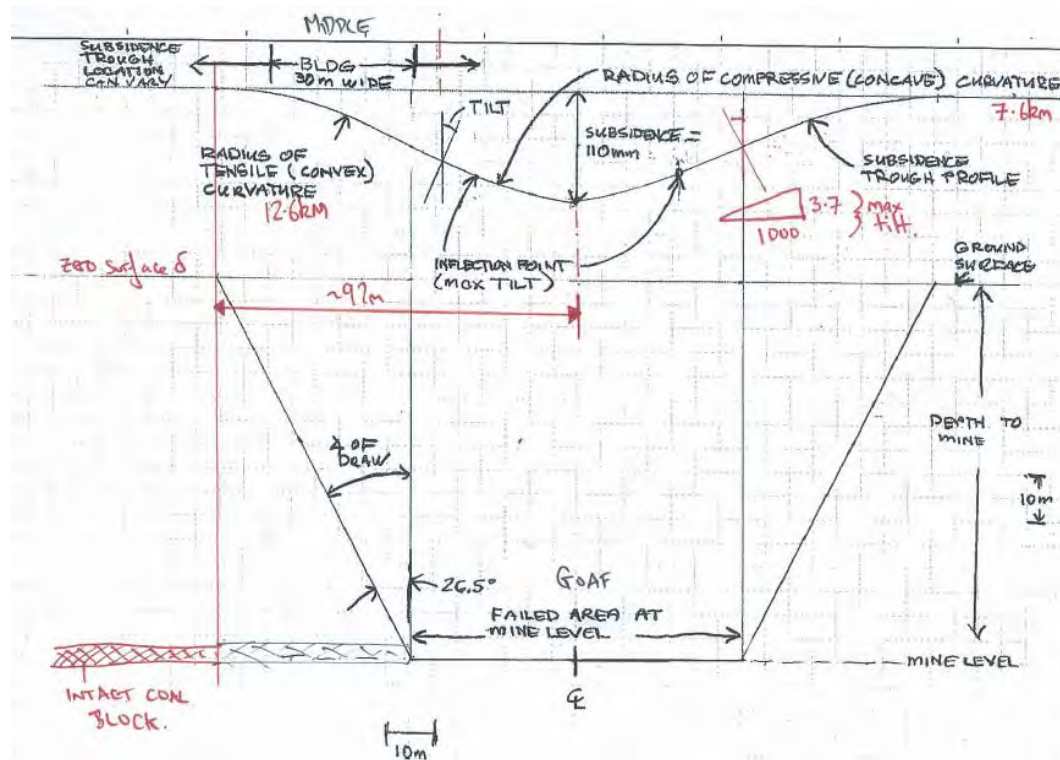 MIDDLE
SUBSIDENCE
TROUGH
LOCATION
CAN VARY
BLDG
30m WIDE
RADIUS OF COMPRESSIVE (CONCAVE) CURVATURE
7.6km
TILT
SUBSIDENCE =
110mm
RADIUS OF
TENSILE (CONVEX)
CURVATURE
12.6km
SUBSIDENCE
TROUGH PROFILE
3.7 } max
tilt.
1000
INFLECTION POINT
(MAX TILT)
GROUND
SURFACE
zero surface δ
~92m
DEPTH TO
MINE
∠ OF
DRAW
10m
26.5°
GOAF
FAILED AREA AT
MINE LEVEL
MINE LEVEL
INTACT COAL
BLOCK.
℄
10m